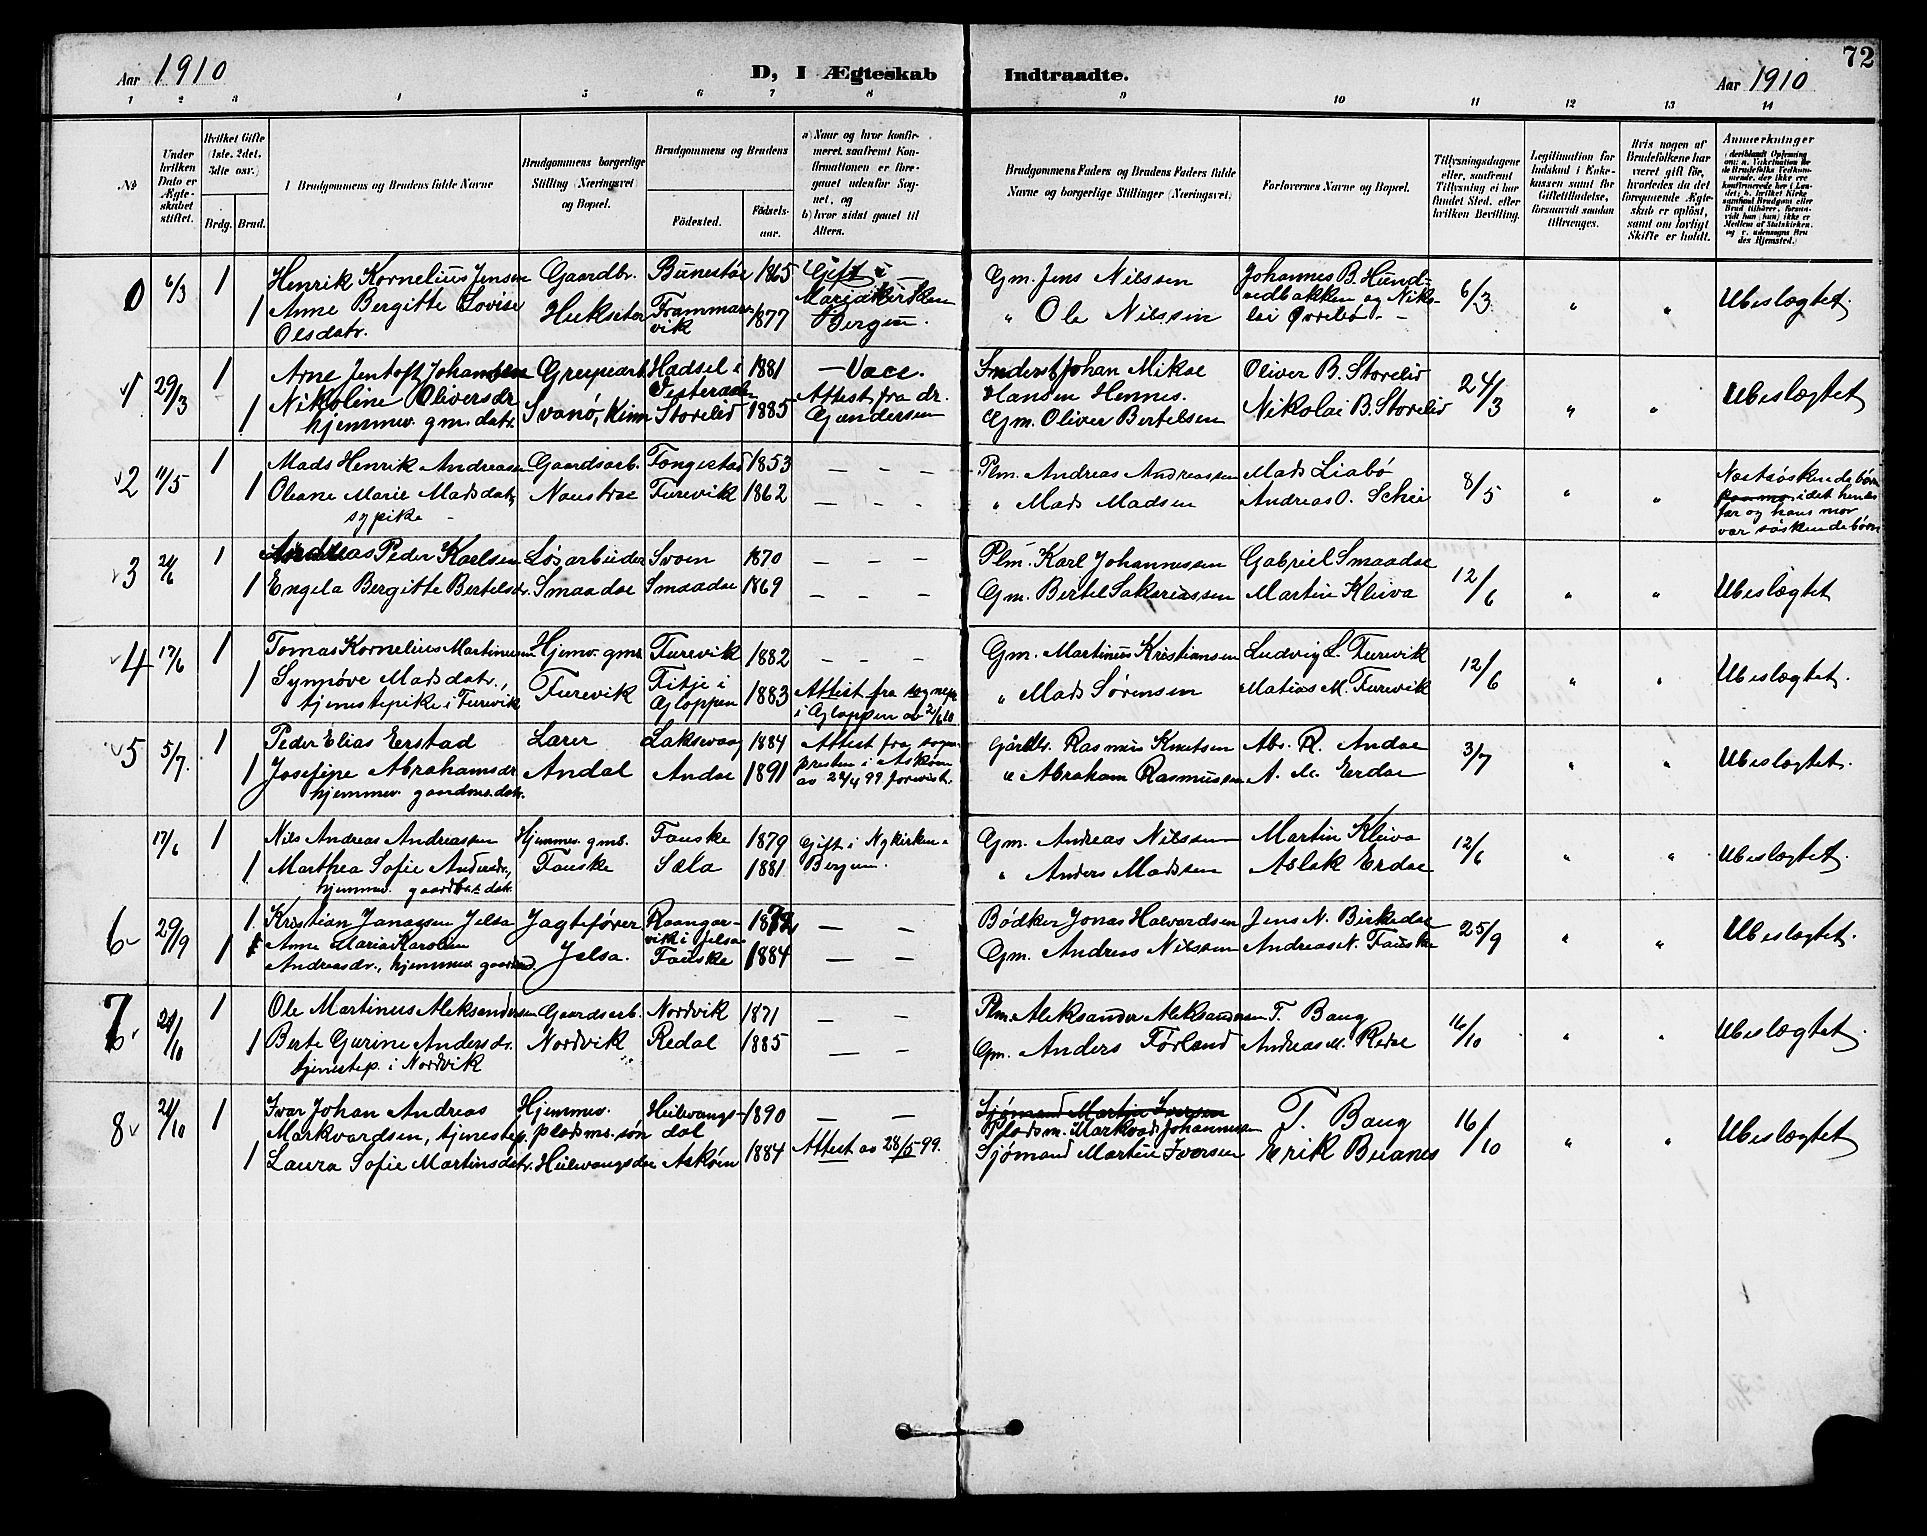 72
Aar 1910
D, I Ægteskab Indtraadte.
Aar 1910
1 2 3 4 5 6 7 8 9 10 11 12 13 14
No
Under hvilken Dato er Ægteskabet stiftet.
Hvilket Gifte (1ste, 2det, 3die osv.)
Brdg. Brud.
Brudgommens og Brudens fulde Navne
Brudgommens borgerlige Stilling (Næringsvei) og Bopæl.
Brudgommens og Brudens
Fødested.
Fødselsaar.
a) Naar og hvor konfirmeret, saafremt Konfirmationen er foregaaet udenfor Sognet, og
b) hvor sidst gaaet til Alters.
Brudgommens Faders og Brudens Faders fulde Navne og borgerlige Stillinger (Næringsvei).
Forlovernes Navne og Bopæl.
Tillysningsdagene eller, saafremt Tillysning ei har fundet Sted, efter hvilken Bevilling.
Legitimation for Indskud i Enkekassen samt for Giftetilladelse, forsaavidt saadan tiltrænges.
Hvis nogen af Brudefolkene har været gift før, hvorledes da det foregaaende Ægteskab er opløst, samt om lovligt Skifte er holdt.
Anmerkninger
0 6/3 1 Henrik Kornelius Jensen Gaardbr. Bunestøl 1865 Gift i Gm. Jens Nilssen Johannes B. Hund- 6/3 " " Ubeslægtet.
1 Anne Bergitte Lovise Olsdatr. 1877 Mariakirken Bergen. " Ole Nilssen
1 29/3 1 Arne Jentoft Johansen Hadsel i Vesteraalen 1881 Vacc. Johan Mikal Hansen Hennes. Oliver B. Storelid 24/3 " " Ubeslægtet
1 Nikoline Oliversdr. hjemmev. gm. datr. Svanö, Kinn Storelid 1885 Attest fra dr. Gundersen Gm. Oliver Bertelsen Nikolai B. Storelid
2 11/5 1 Mads Henrik Andreassen Gaardsarb. Tongestad 1853 — — — Plm. Andreas Andreassen Mads Liabö 8/5 " " Næstsöskendebörn
1 Oleane Marie Madsdatr. sypike Naustdal Furevik 1862 — — — " Mads Madsen Andreas O. Schei idet hendes far og hans mor var söskendebörn
3 24/6 1 Andreas Peder Karlsen Lösarbeider Svoen 1870 — — — Plm. Karl Johannessen Gabriel Smaadal 12/6 " " Ubeslægtet
1 Engela Bergitte Bertelsdr. Smaadal Smaadal 1869 — — — Gm. Bertel Sakariassen Martin Kleiva
4 17/6 1 Tomas Kornelius Martinussen Hjemv. gms. Furevik 1882 — — — Gm. Martinus Kristiansen Ludvig L. Furevik 12/6 " " Ubeslægtet.
1 Synnöve Madsdatr., tjenestepike i Furevik Furevik Fitje i Gloppen 1883 Attest fra sognepr. i Gloppen av 2/6 10 " Mads Sörensen Matias M. Furevik
5 5/7 1 Peder Elias Erstad Lærer Laksevaag 1884 Attest fra sogne- Gårdbr. Rasmus Knutsen Abr. R. Andal 3/7 " " Ubeslægtet.
1 Josefine Abrahamsdr. hjemmev. gaardms. datr. Andal Andal 1891 presten i Asköen av 24/4 99 forevist. " Abraham Rasmussen A. M. Erdal
17/6 1 Nils Andreas Andreassen Hjemmev. gms. Fauske 1879 Gift i Nykirken Gm. Andreas Nilssen Martin Kleiva 12/6 " " Ubeslægtet.
1 Marthea Sofie Andersdr., hjemmev. gaardbr. datr. Fauske Sæla 1881 Bergen. " Anders Madssen Aslak Erdal
6 29/9 1 Kristian Janassen Jelsa Jagtefører Raangarvik i Jelsa — — Bødker Jonas Halvardsen Jens N. Birkedal 25/9 " " Ubeslægtet.
1 Anne Maria Karoline Andreasdr., hjemmev. Jelsa. Fauske 1884 — — Gm. Andreas Nilssen Andreas N. Fauske
7 21/10 1 Ole Martinus Aleksandersen Gaardsarb. Nordvik 1871 — — Plm. Aleksander Aleksandersen T. Baug 16/10 " " Ubeslægtet.
1 Berte Gurine Andersdr. tjenestep. i Nordvik Nordvik Redal 1885 — — Gm. Anders Förland Andreas M. Redal
8 21/10 1 Ivar Johan Andreas Markvardsen, tjenestep. Hjemmev. pladsms. sön Heilevangsdal 1890 — — Sjömand Martin Iversen Pladsm. Markvard Johannessen T. Baug 16/10 " " Ubeslægtet
1 Laura Sofie Martinsdatr. Heilevangsdal Asköen 1884 Attest av 28/5 99. Sjömand Martin Iversen Erik Buanes